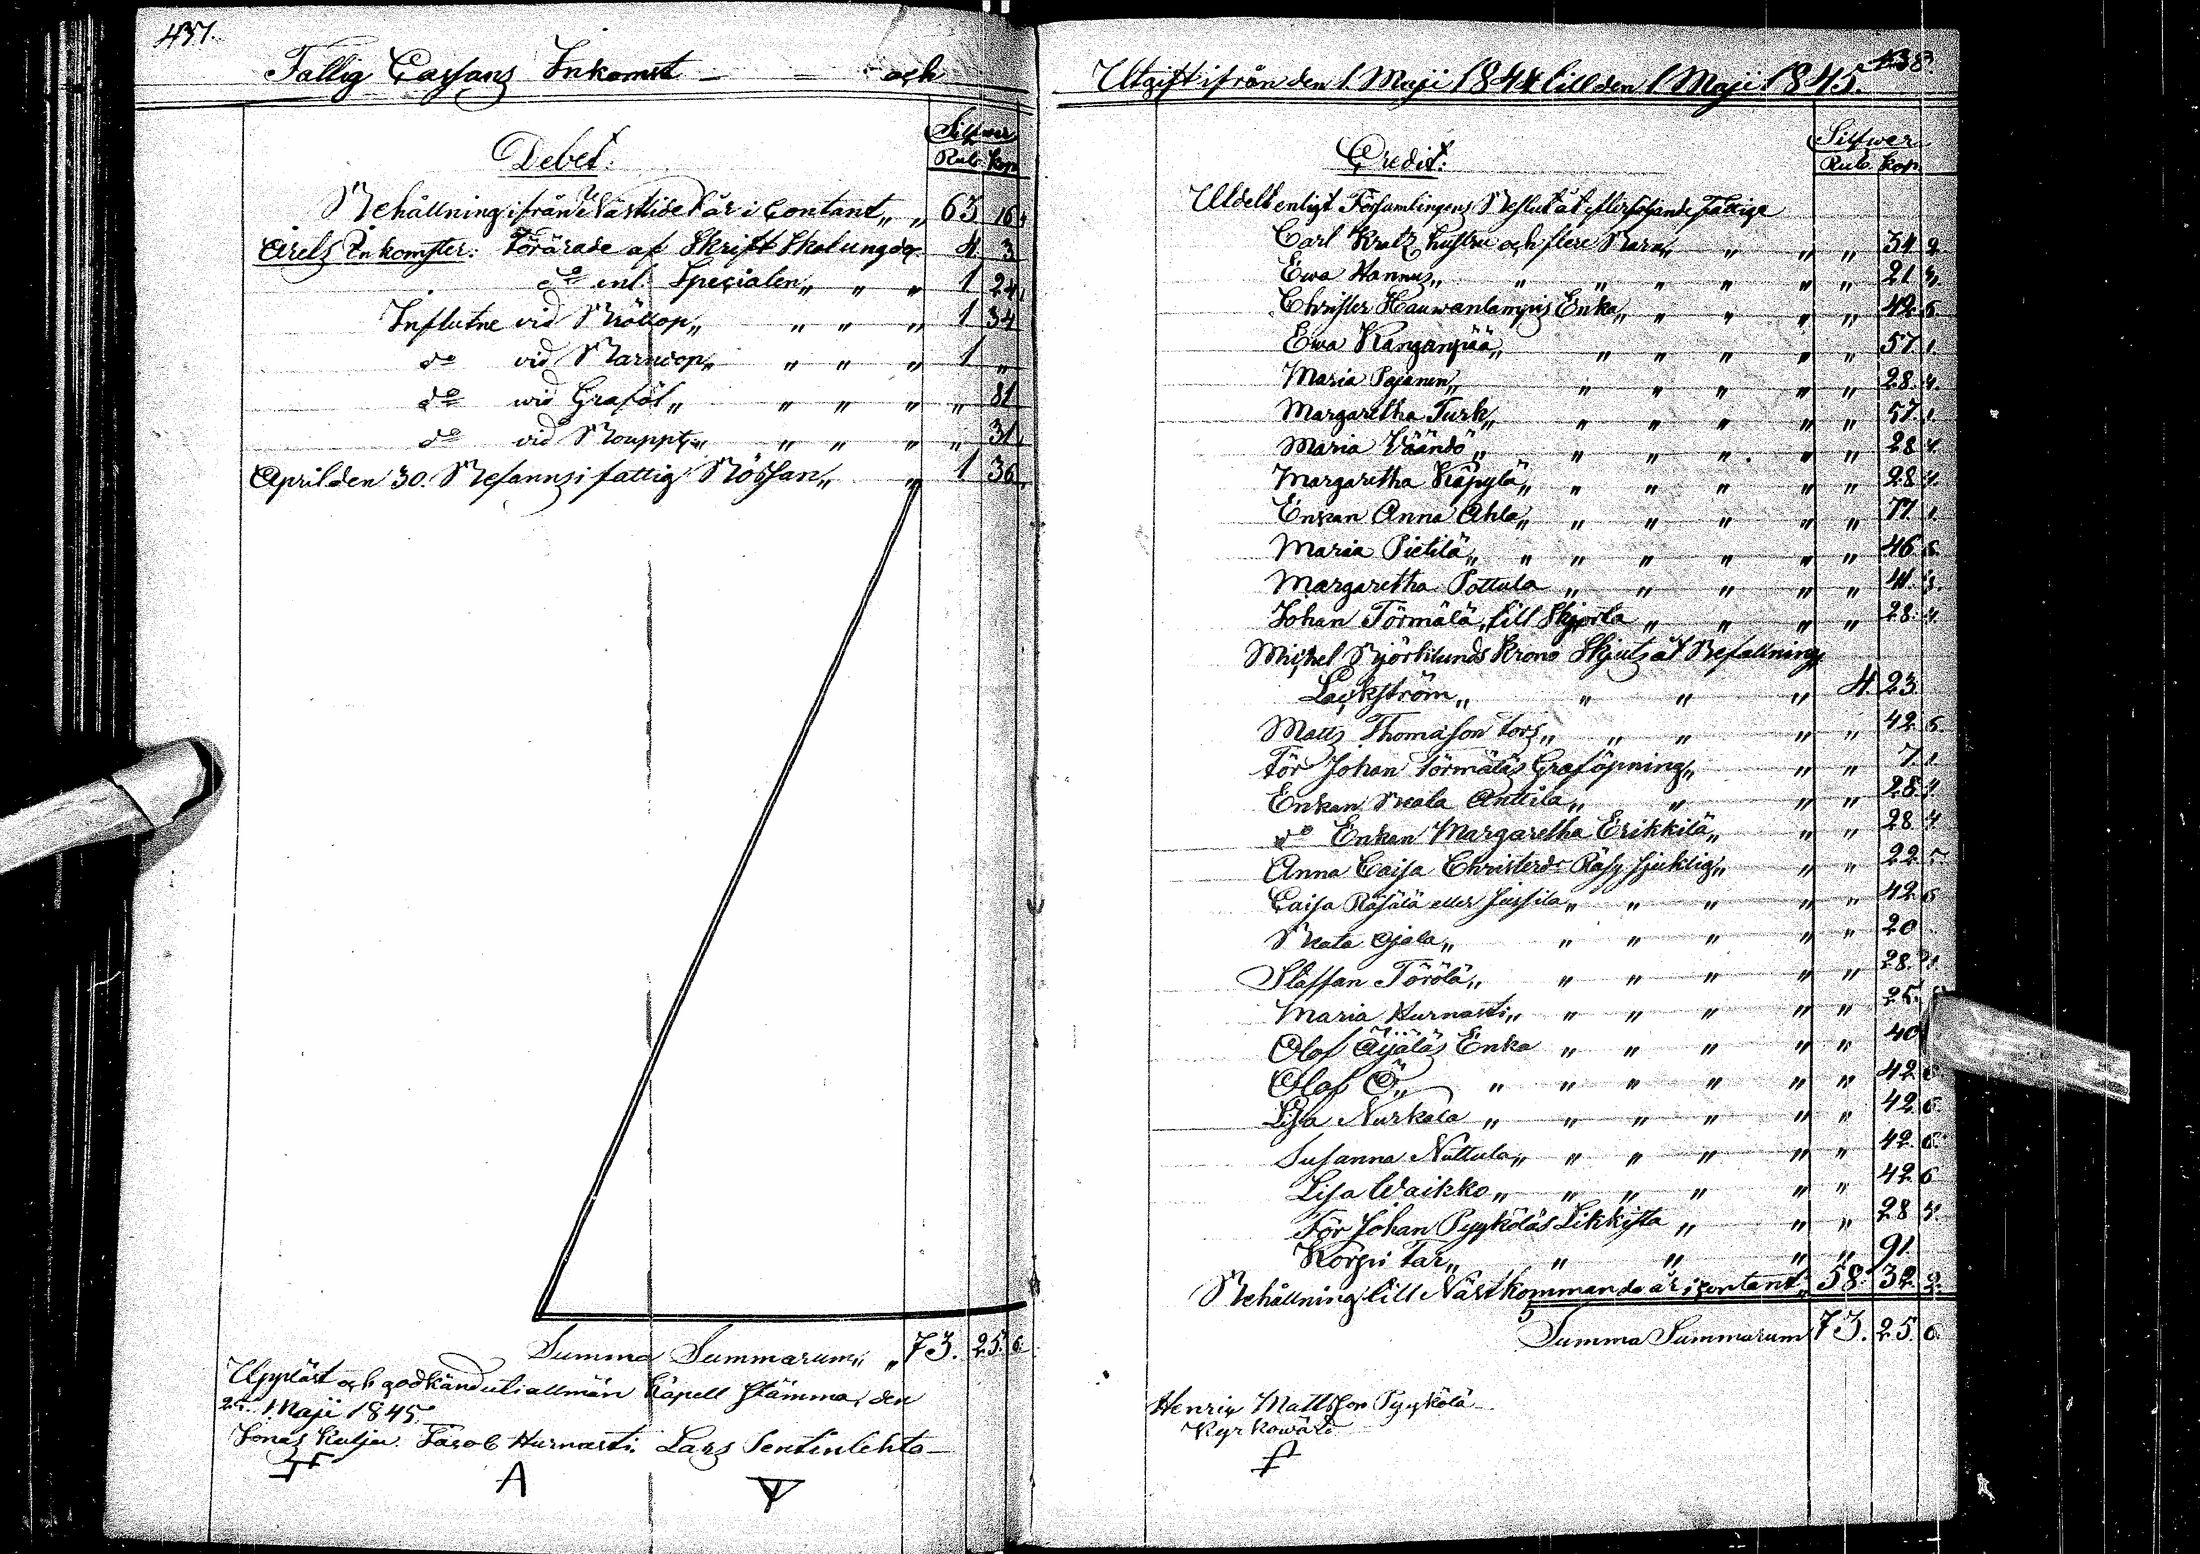 437.
Fattig Cassans Inkomst — och
Silfwer
Debet.
Rub. kop.
Behållning ifrån Nästlide år i Contant „ „ 63 16
Årets Inkomster: Förärade af Skrift Skolungdo. 4 3
do enl. Specialen „ „ „ 1 24
Influtne vid Bröllop „ „ „ „ 1 34
do vid Barndop „ „ „ „ 1 „
do wid Graföl „ „ „ „ „ 81
do vid „ „ „ „ 31
April den 30. Befanns i fattig Bössan „ „ 1 36
Summa Summarum „ „ 73. 25. 6.
Uppläst och godkänd uti allmän Kapell Stämma, den
25. Maji 1845.
Jonas Kulju. Jacob Hurnasti. Lars Sentinlehto
A
438.
Utgift ifrån den 1 Maji 1844 till den 1 Maji 1845.
Silfwer
Credit.
Rub. kop.
Utdelt enligt Församlingens Beslut åt efterföljande Fattige
Carl Kratz hustru och flere Barn „ „ „ „ 34 2
Ewa Hannus „ „ „ „ „ „ „ 21 3
Christer Hauwanlampis Enka „ „ „ „ „ 42 6
Ewa Kangaspää „ „ „ „ „ „ 57 1
Maria Pajanen „ „ „ „ „ „ 28. 4.
Margaretha Turk „ „ „ „ „ „ 57. 1
Maria Wäändö „ „ „ „ „ „ 28 4
Margaretha Käpylä „ „ „ „ „ „ 28 4.
Enkan Anna Ahla „ „ „ „ „ „ 77. 1
Maria Pietilä „ „ „ „ „ „ „ 46 6
Margaretha Pottula „ „ „ „ „ 41. 3.
Johan Törmälä, till Skjorta „ „ „ „ 28. 4
Michel Björklunds Krono Skjuts åt Befallning
Lackström „ „ „ „ 4. 23.
Matts Thomasson Tors „ „ „ „ „ 42 6
För Johan Törmäläs Graföpning „ „ „ 7 1.
Enkan Beata Anttila „ „ „ „ 28. 4
do Enkan Margaretha Erikkilä „ „ „ 28 4.
Anna Caisa Christersdr Räsy sjuklig „ „ „ 22 5
Caisa Räsälä eller Jussila „ „ „ „ „ 42 6
Beata Ojala „ „ „ „ „ „ 20
Staffan Törölä „ „ „ „ „ „ 28. 4.
Maria Hurnasti „ „ „ „ „ „ 25.
Olof Äijäläs Enka „ „ „ „ „ 40
Olof Ö „ „ „ „ „ „ „ 42 6
Lisa Nurkala „ „ „ „ „ „ 42 6
Susanna Nuttula „ „ „ „ „ „ 42 6.
Lisa Waikko „ „ „ „ „ „ 42 6
För Johan Pyyköläs Likkista „ „ „ 28 4.
Korpi Lar „ „ „ „ „ 91.
Behållning till Nästkommande år i Contant „ 58. 32. 2.
Summa Summarum 73. 25. 6.
Henrix Mattsson Pyykölä
Kyrkowärd